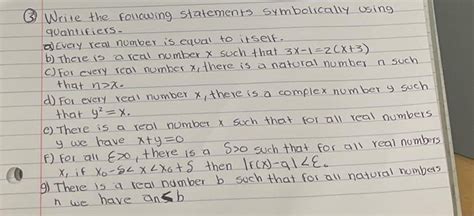 ③ Write the following statements symbolically using
quantifiers.
a) Every real number is equal to itself.
b) There is a real number x such that 3x-1=2(x+3)
c) For every real number x, there is a natural number n such
that n>x.
d) For every real number x, there is a complex number y such
that y²=x.
e) There is a real number x such that for all real numbers
y we have x+y=0
F) For all ε>0, there is a δ>0 such that for all real numbers
x, if x₀-δ<x<x₀+δ then |f(x)-q|<ε.
g) There is a real number b such that for all natural numbers
n we have aₙ≤b